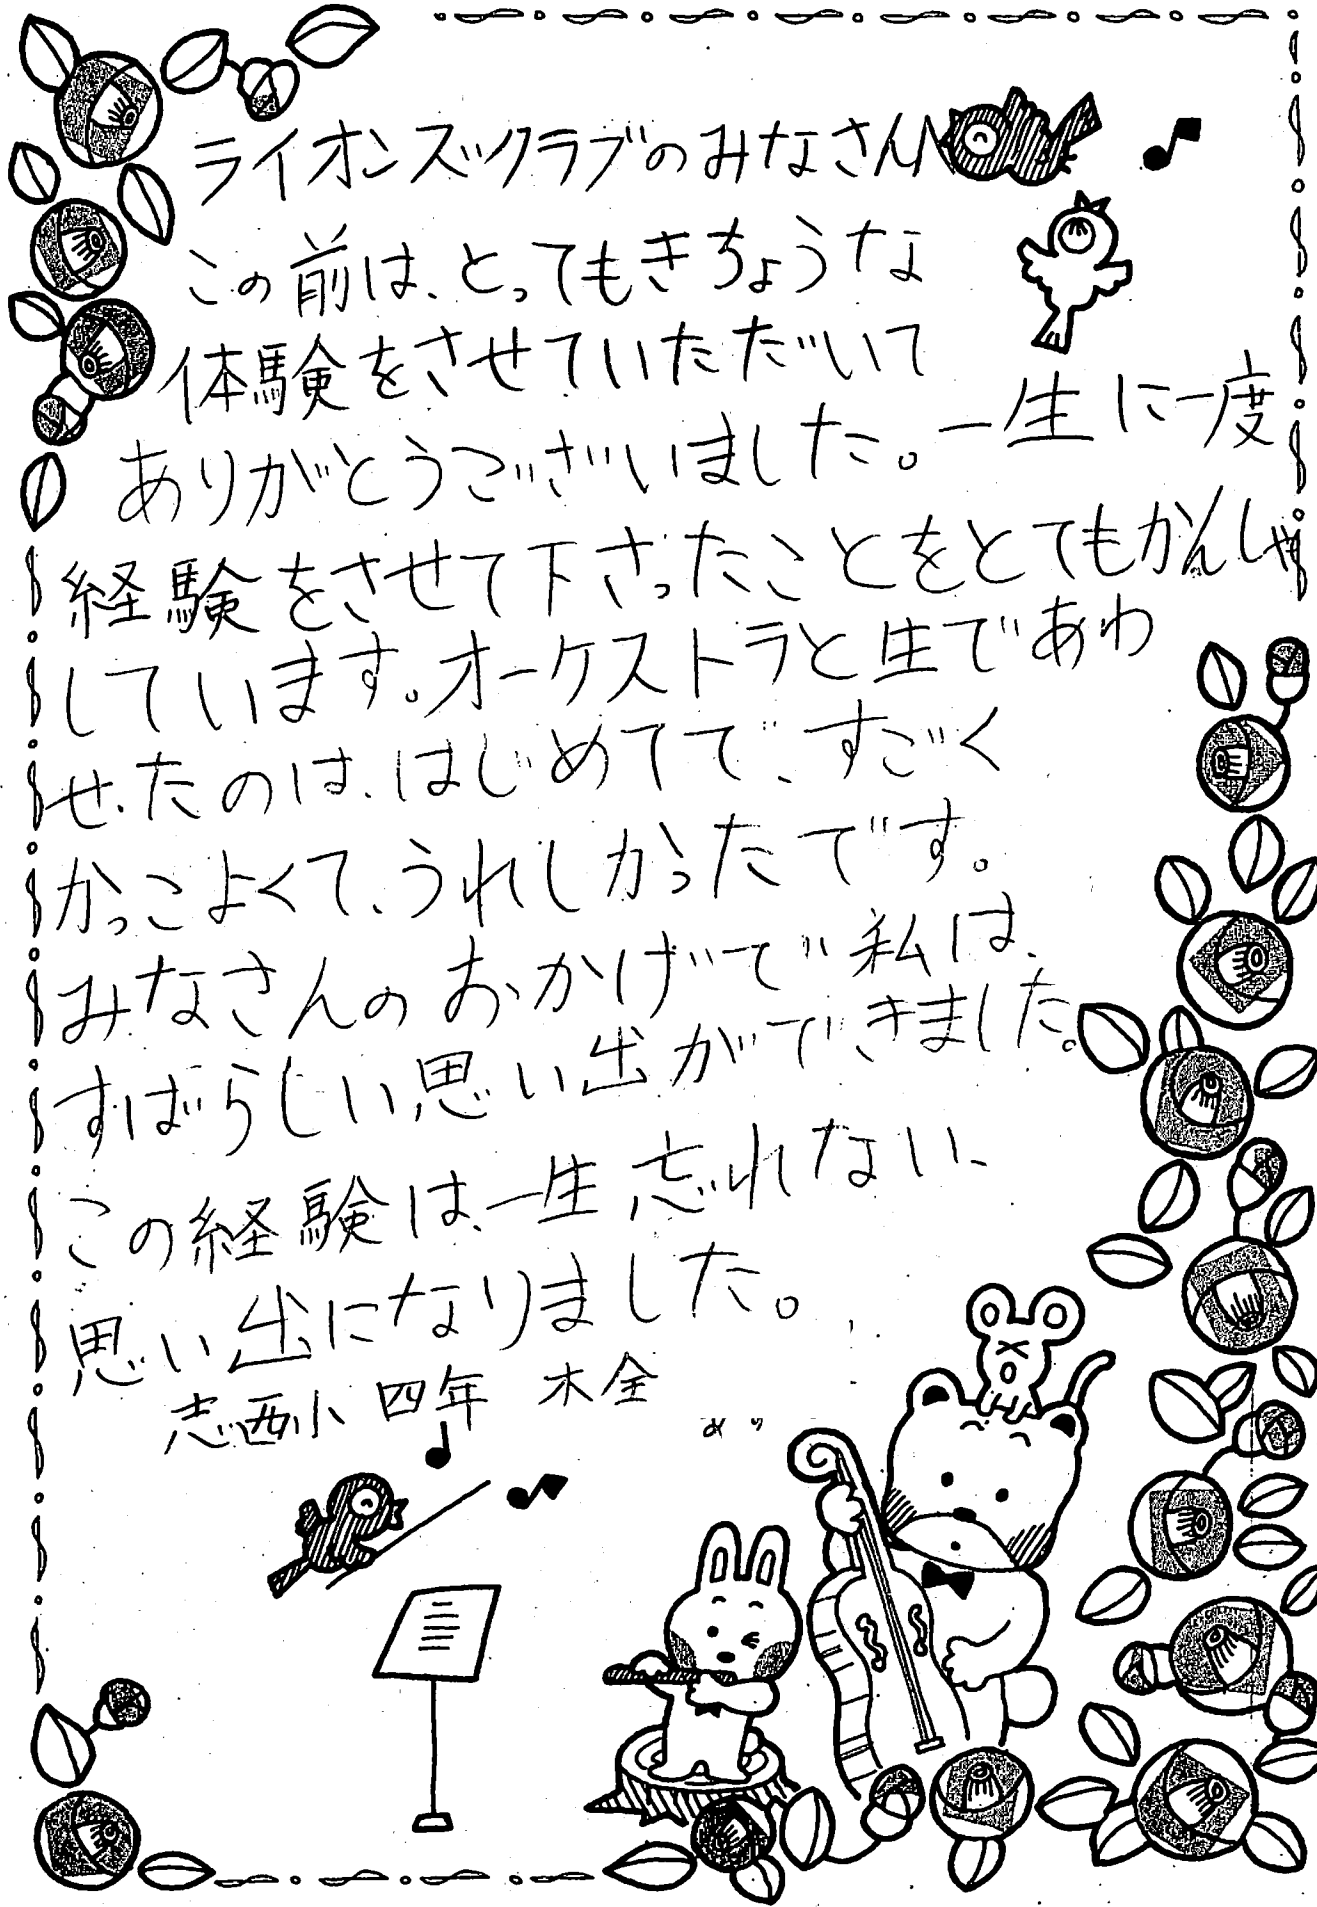 ライオンズックラブのみなさんへ
この前は、とってもきちょうな
体験をさせていただいて
ありがとうございました。一生に一度
経験をさせて下さったことをとてもかんしゃ
しています。オーケストラと生であわ
せたのは、はじめてで、すごく
かっこよくて、うれしかったです。
みなさんのおかげで私は、
すばらしい思い出ができました。
この経験は、一生忘れない、
思い出になりました。
志西小 四年